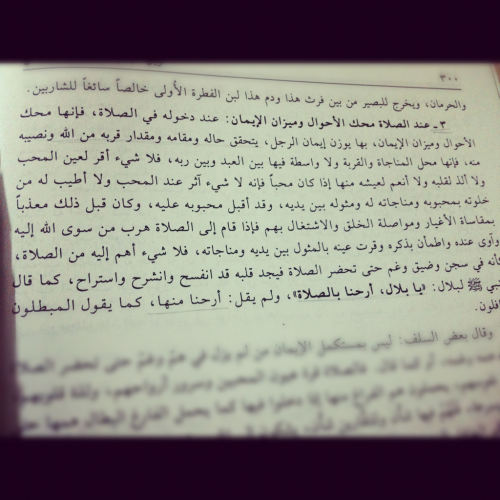 ٣٠٠
والحرمان، ويخرج للبصير من بين فرث هذا ودم هذا لبن الفطرة الأولى خالصاً سائغاً للشاربين.
٣ ـ عند الصلاة محك الأحوال وميزان الإيمان: عند دخوله في الصلاة، فإنها محك
الأحوال وميزان الإيمان، بها يوزن إيمان الرجل، يتحقق حاله ومقامه ومقدار قربه من الله ونصيبه
منه، فإنها محل المناجاة والقربة ولا واسطة فيها بين العبد وبين ربه، فلا شيء أقر لعين المحب
ولا ألذ لقلبه ولا أنعم لعيشه منها إذا كان محباً فإنه لا شيء آثر عند المحب ولا أطيب له من
خلوته بمحبوبه ومناجاته له ومثوله بين يديه، وقد أقبل محبوبه عليه، وكان قبل ذلك معذباً
بمقاساة الأغيار ومواصلة الخلق والاشتغال بهم فإذا قام إلى الصلاة هرب من سوى الله إليه
وآوى عنده واطمأن بذكره وقرت عينه بالمثول بين يديه ومناجاته، فلا شيء أهم إليه من الصلاة،
كأنه في سجن وضيق وغم حتى تحضر الصلاة فيجد قلبه قد انفسح وانشرح واستراح، كما قال
النبي ﷺ لبلال: «يا بلال، أرحنا بالصلاة»، ولم يقل: أرحنا منها، كما يقول المبطلون
وقال بعض السلف: ليس بمستكمل الإيمان من لم يزل في هم وغم حتى تحضر الصلاة